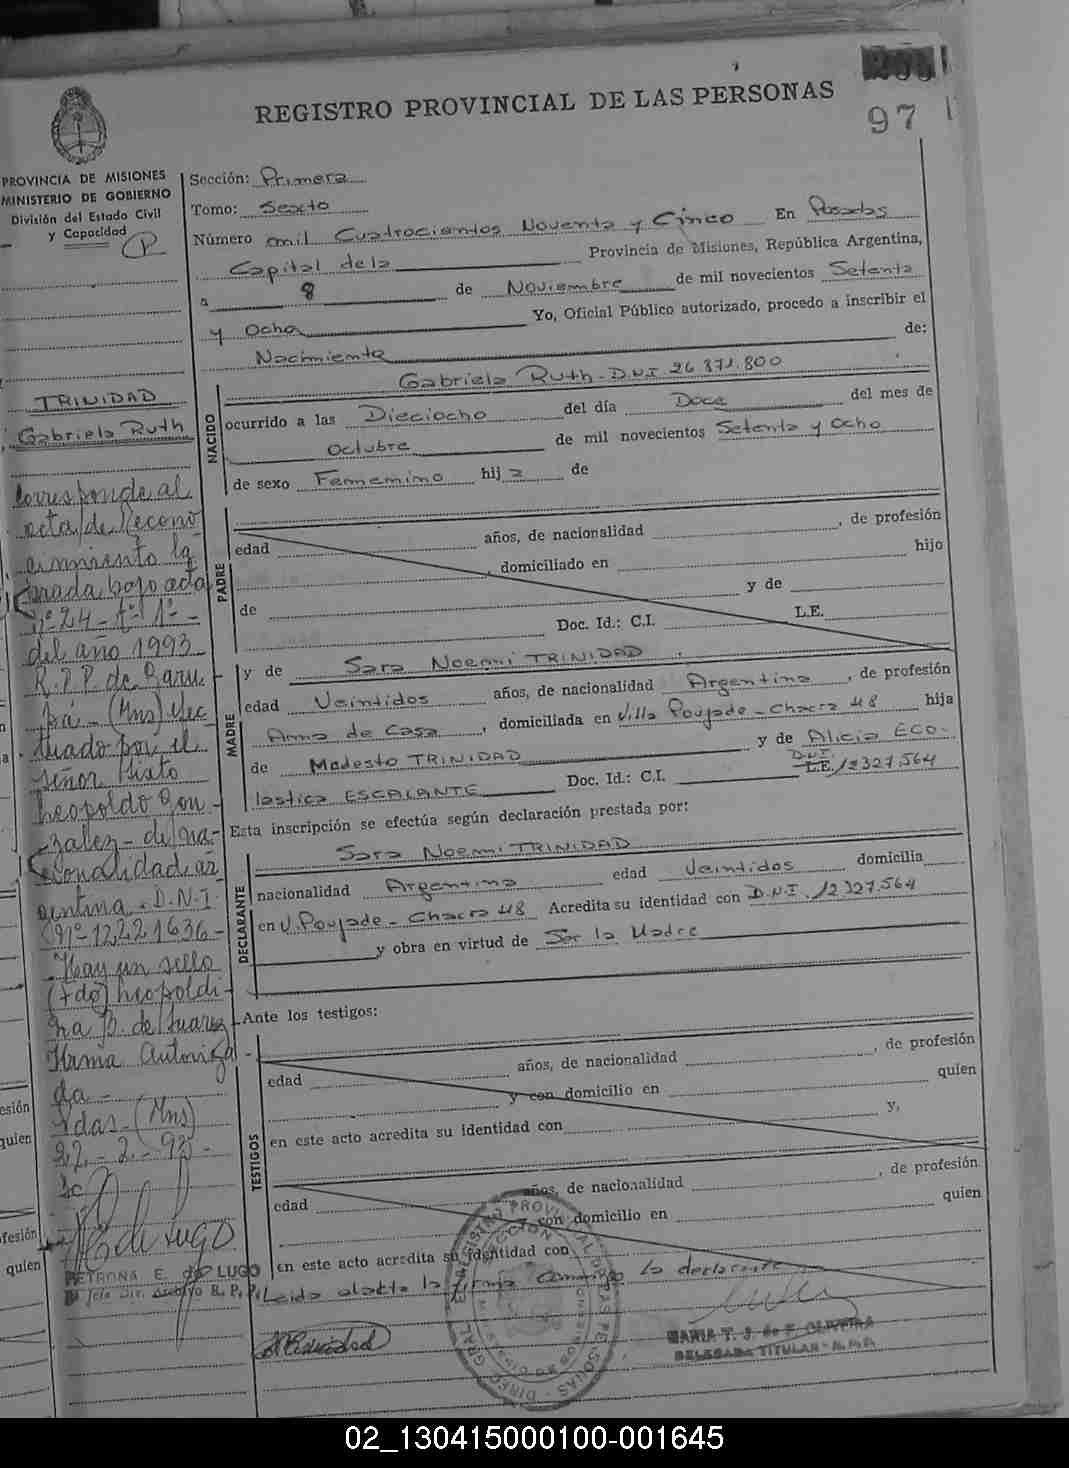 REGISTRO PROVINCIAL DE LAS PERSONAS
97
PROVINCIA DE MISIONES
MINISTERIO DE GOBIERNO
División del Estado Civil
y Capacidad
Sección: Primera
Tomo: Sexto
Número mil Cuatrocientos Noventa y Cinco En Posadas
Capital de la Provincia de Misiones, República Argentina,
a 8 de Noviembre de mil novecientos Setenta
y Ocho Yo, Oficial Público autorizado, procedo a inscribir el
Nacimiento de:
TRINIDAD
Gabriela Ruth
Corresponde al
acta de Recono
cimiento la
brada bajo acta
nº 24 - tº 1º -
del año 1993
R.P.P. de Garu-
pá - (Mns) efec
tuado por el
señor Sixto
Leopoldo Gon-
zalez - de na-
cionalidad ar
gentina. D.N.I
Nº 12221636 -
Hay un sello
(fdo) Leopoldi-
na B. de Juarez
Firma Autoriza
da -
Pdas - (Mns)
22 - 2 - 93 -
PETRONA E. de LUGO
Jefe Div. Archivo R. P. P.
NACIDO
Gabriela Ruth - D.N.I 26.871.800
ocurrido a las Dieciocho del día Doce del mes de
Octubre de mil novecientos Setenta y Ocho
de sexo Femenino hija de
PADRE
edad años, de nacionalidad , de profesión
, domiciliado en hijo
de y de
Doc. Id.: C.I. L.E.
MADRE
y de Sara Noemi TRINIDAD
edad Veintidos años, de nacionalidad Argentina , de profesión
Ama de Casa , domiciliada en Villa Poujade - Chacra 48 hija
de Modesto TRINIDAD y de Alicia Eco-
lastica ESCALANTE Doc. Id.: C.I. L.E. D.N.I. 12327.564
Esta inscripción se efectúa según declaración prestada por:
DECLARANTE
Sara Noemi TRINIDAD
nacionalidad Argentina edad Veintidos domicilia
en V. Poujade - Chacra 48 Acredita su identidad con D.N.I. 12327.564
y obra en virtud de Ser la Madre
Ante los testigos:
TESTIGOS
edad años, de nacionalidad , de profesión
y con domicilio en quien
en este acto acredita su identidad con y,
edad años, de nacionalidad , de profesión
y con domicilio en quien
en este acto acredita su identidad con
Leida el acta la firma conmigo la declarante
MARIA T. J. de F. OLIVEIRA
DELEGADA TITULAR
02_130415000100-001645